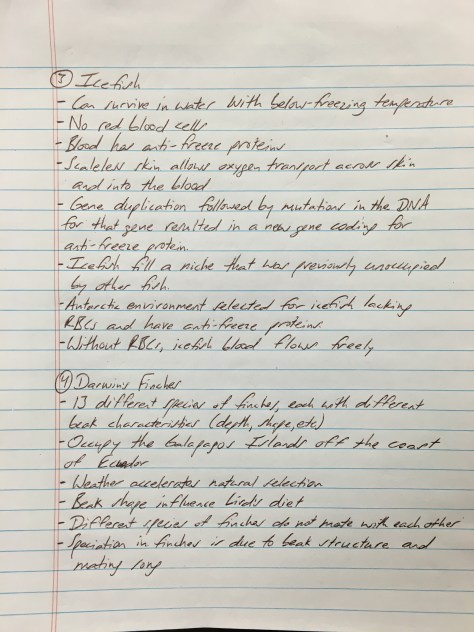 ③ Icefish
- Can survive in water with below-freezing temperature
- No red blood cells
- Blood has anti-freeze proteins
- Scaleless skin allows oxygen transport across skin
and into the blood
- Gene duplication followed by mutations in the DNA
for that gene resulted in a new gene coding for
anti-freeze protein.
- Icefish fill a niche that was previously unoccupied
by other fish.
- Antarctic environment selected for icefish lacking
RBCs and have anti-freeze proteins
- Without RBCs, icefish blood flows freely
④ Darwins Finches
- 13 different species of finches, each with different
beak characteristics (depth, shape, etc)
- Occupy the Galapagos Islands off the coast
of Ecuador
- Weather accelerates natural selection
- Beak shape influence bird's diet
- Different species of finches do not mate with each other
- Speciation in finches is due to beak structure and
mating song